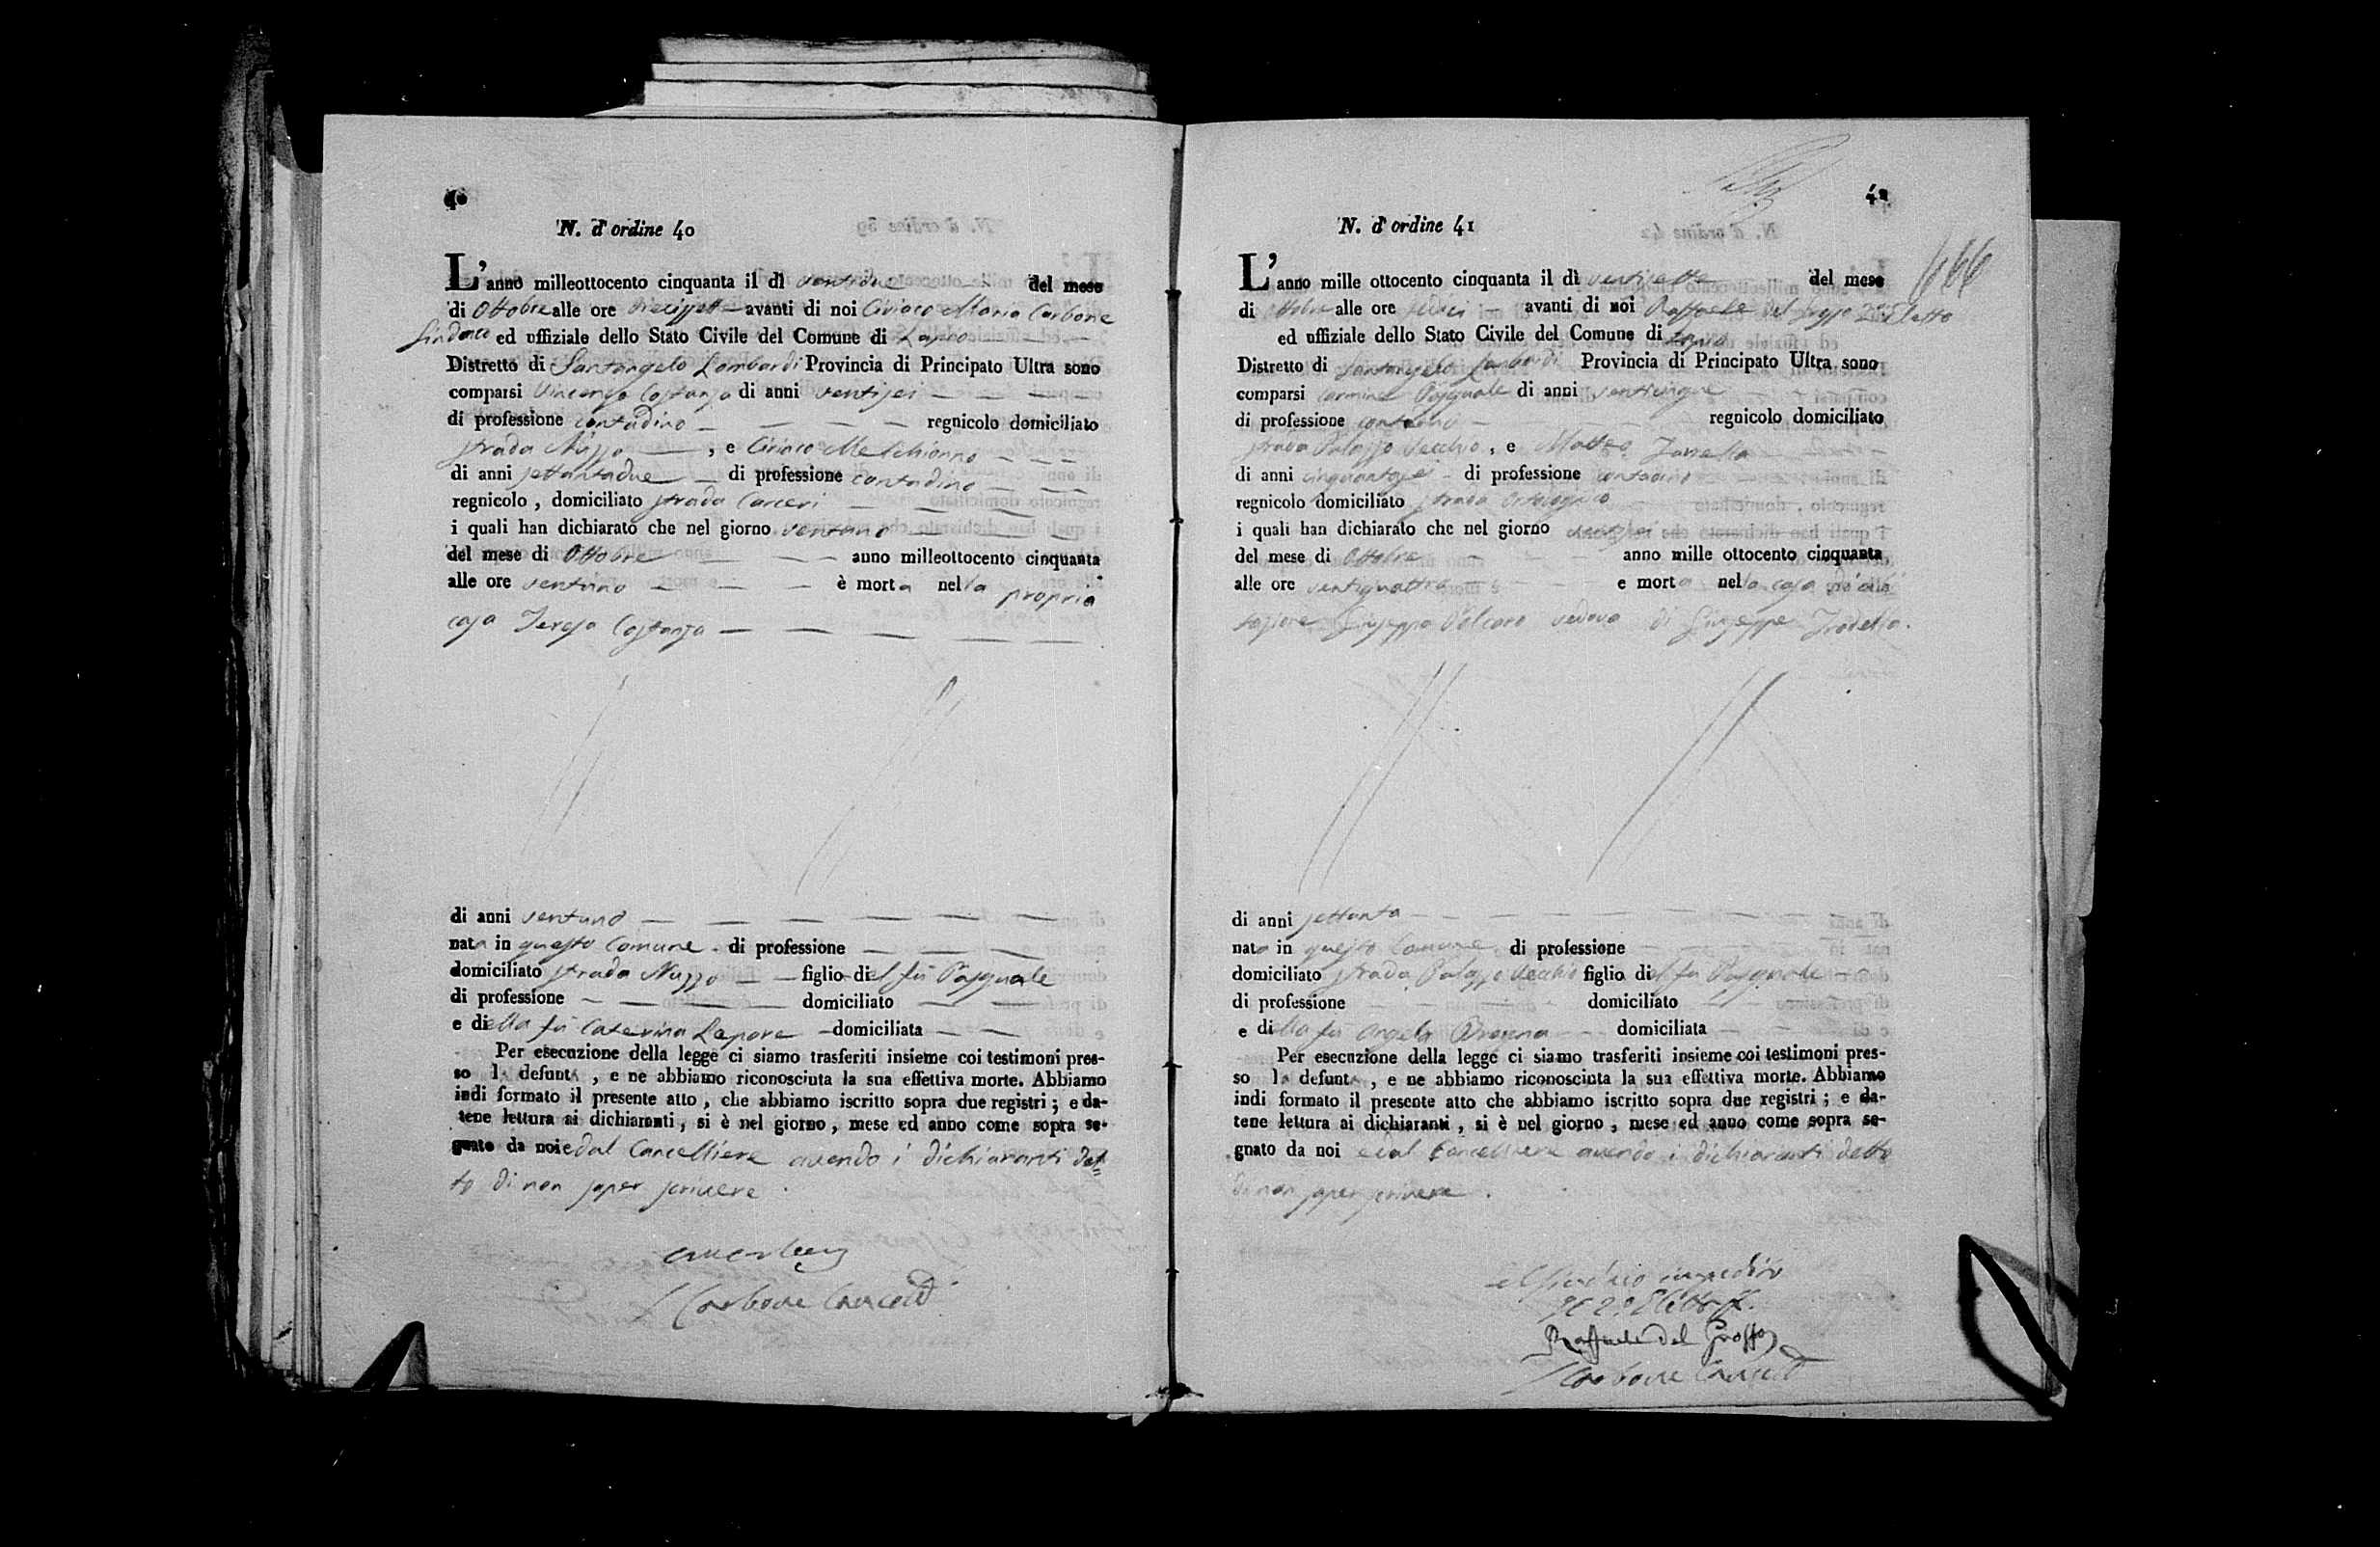 40
N. d'ordine 40
L'anno milleottocento cinquanta il dì ventidue del mese
di Ottobre alle ore diecissette avanti di noi Ciriaco Maria Carbone
Sindaco ed uffiziale dello Stato Civile del Comune di Lapio
Distretto di Santangelo Lombardi Provincia di Principato Ultra sono
comparsi Vincenzo Costanza di anni ventisei
di professione contadino regnicolo domiciliato
strada Nuzzo , e Ciriaco Melchionno
di anni settantadue di professione contadino
regnicolo , domiciliato strada Carceri
i quali han dichiarato che nel giorno ventuno
del mese di Ottobre anno milleottocento cinquanta
alle ore ventuno è morta nella propria
casa Teresa Costanza
di anni ventuno
nata in questo Comune di professione
domiciliato strada Nuzzo figlio del fù Pasquale
di professione domiciliato
e della fù Caterina Lepore domiciliata
Per esecuzione della legge ci siamo trasferiti insieme coi testimoni pres-
so la defunta , e ne abbiamo riconosciuta la sua effettiva morte. Abbiamo
indi formato il presente atto , che abbiamo iscritto sopra due registri ; e da-
tene lettura ai dichiaranti , si è nel giorno , mese ed anno come sopra se-
gnato da noi e dal Cancelliere avendo i dichiaranti det=
to di non saper scrivere .
Carbone
41
N. d'ordine 41
166
L'anno mille ottocento cinquanta il dì ventisette del mese
di Ottobre alle ore sedici avanti di noi Raffaele del Grosso 2° Eletto
ed uffiziale dello Stato Civile del Comune di Lapio
Distretto di Santangelo Lombardi Provincia di Principato Ultra sono
comparsi Carmine Pasquale di anni venticinque
di professione contadino regnicolo domiciliato
strada Palazzo Vecchio , e Matteo Iannella
di anni cinquantasei di professione contadino
regnicolo domiciliato strada
i quali han dichiarato che nel giorno ventisei
del mese di Ottobre anno mille ottocento cinquanta
alle ore ventiquattro e morta nella casa di abi
tazione Giuseppa Volcano vedova di Giuseppe
di anni settanta
nata in questo Comune di professione
domiciliato strada Palazzo Vecchio figlia del fù Pasquale
di professione domiciliato
e della fù Angela domiciliata
Per esecuzione della legge ci siamo trasferiti insieme coi testimoni pres-
so la defunta , e ne abbiamo riconosciuta la sua effettiva morte. Abbiamo
indi formato il presente atto che abbiamo iscritto sopra due registri ; e da-
tene lettura ai dichiaranti , si è nel giorno , mese ed anno come sopra se-
gnato da noi e dal Cancelliere avendo i dichiaranti detto
di non saper scrivere .
il Sindaco impedito
Il 2° Eletto ff.
Raffaele del Grosso
Carbone